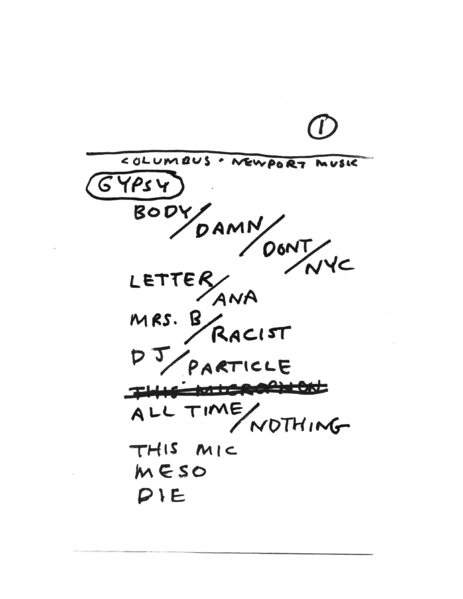 1
COLUMBUS • NEWPORT MUSIC
GYPSY
BODY/DAMN/DONT/NYC
LETTER/ANA
MRS. B/RACIST
DJ/PARTICLE
THIS MICROPHON
ALL TIME/NOTHING
THIS MIC
MESO
DIE